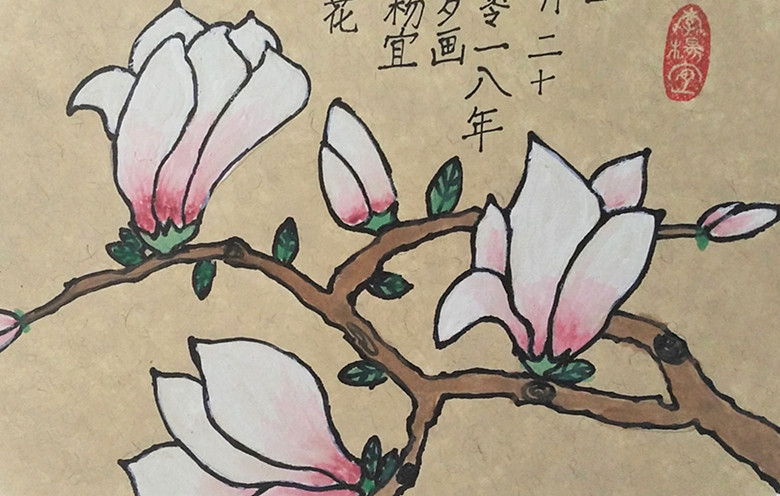 二十
零一八年
画
杨宜
花